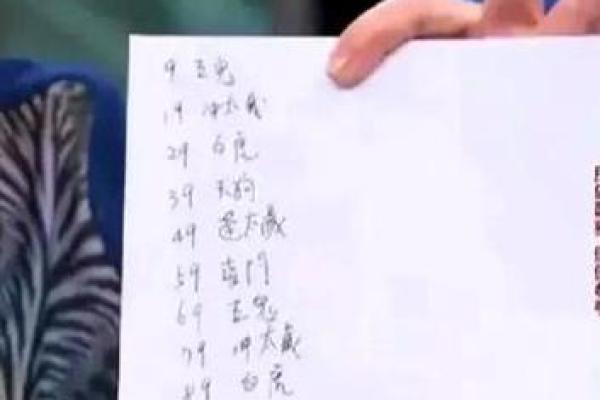 9 五鬼
19 冲太歲
29 白虎
39 天狗
49 逢太歲
59 喪門
69 五鬼
79 冲太歲
89 白虎